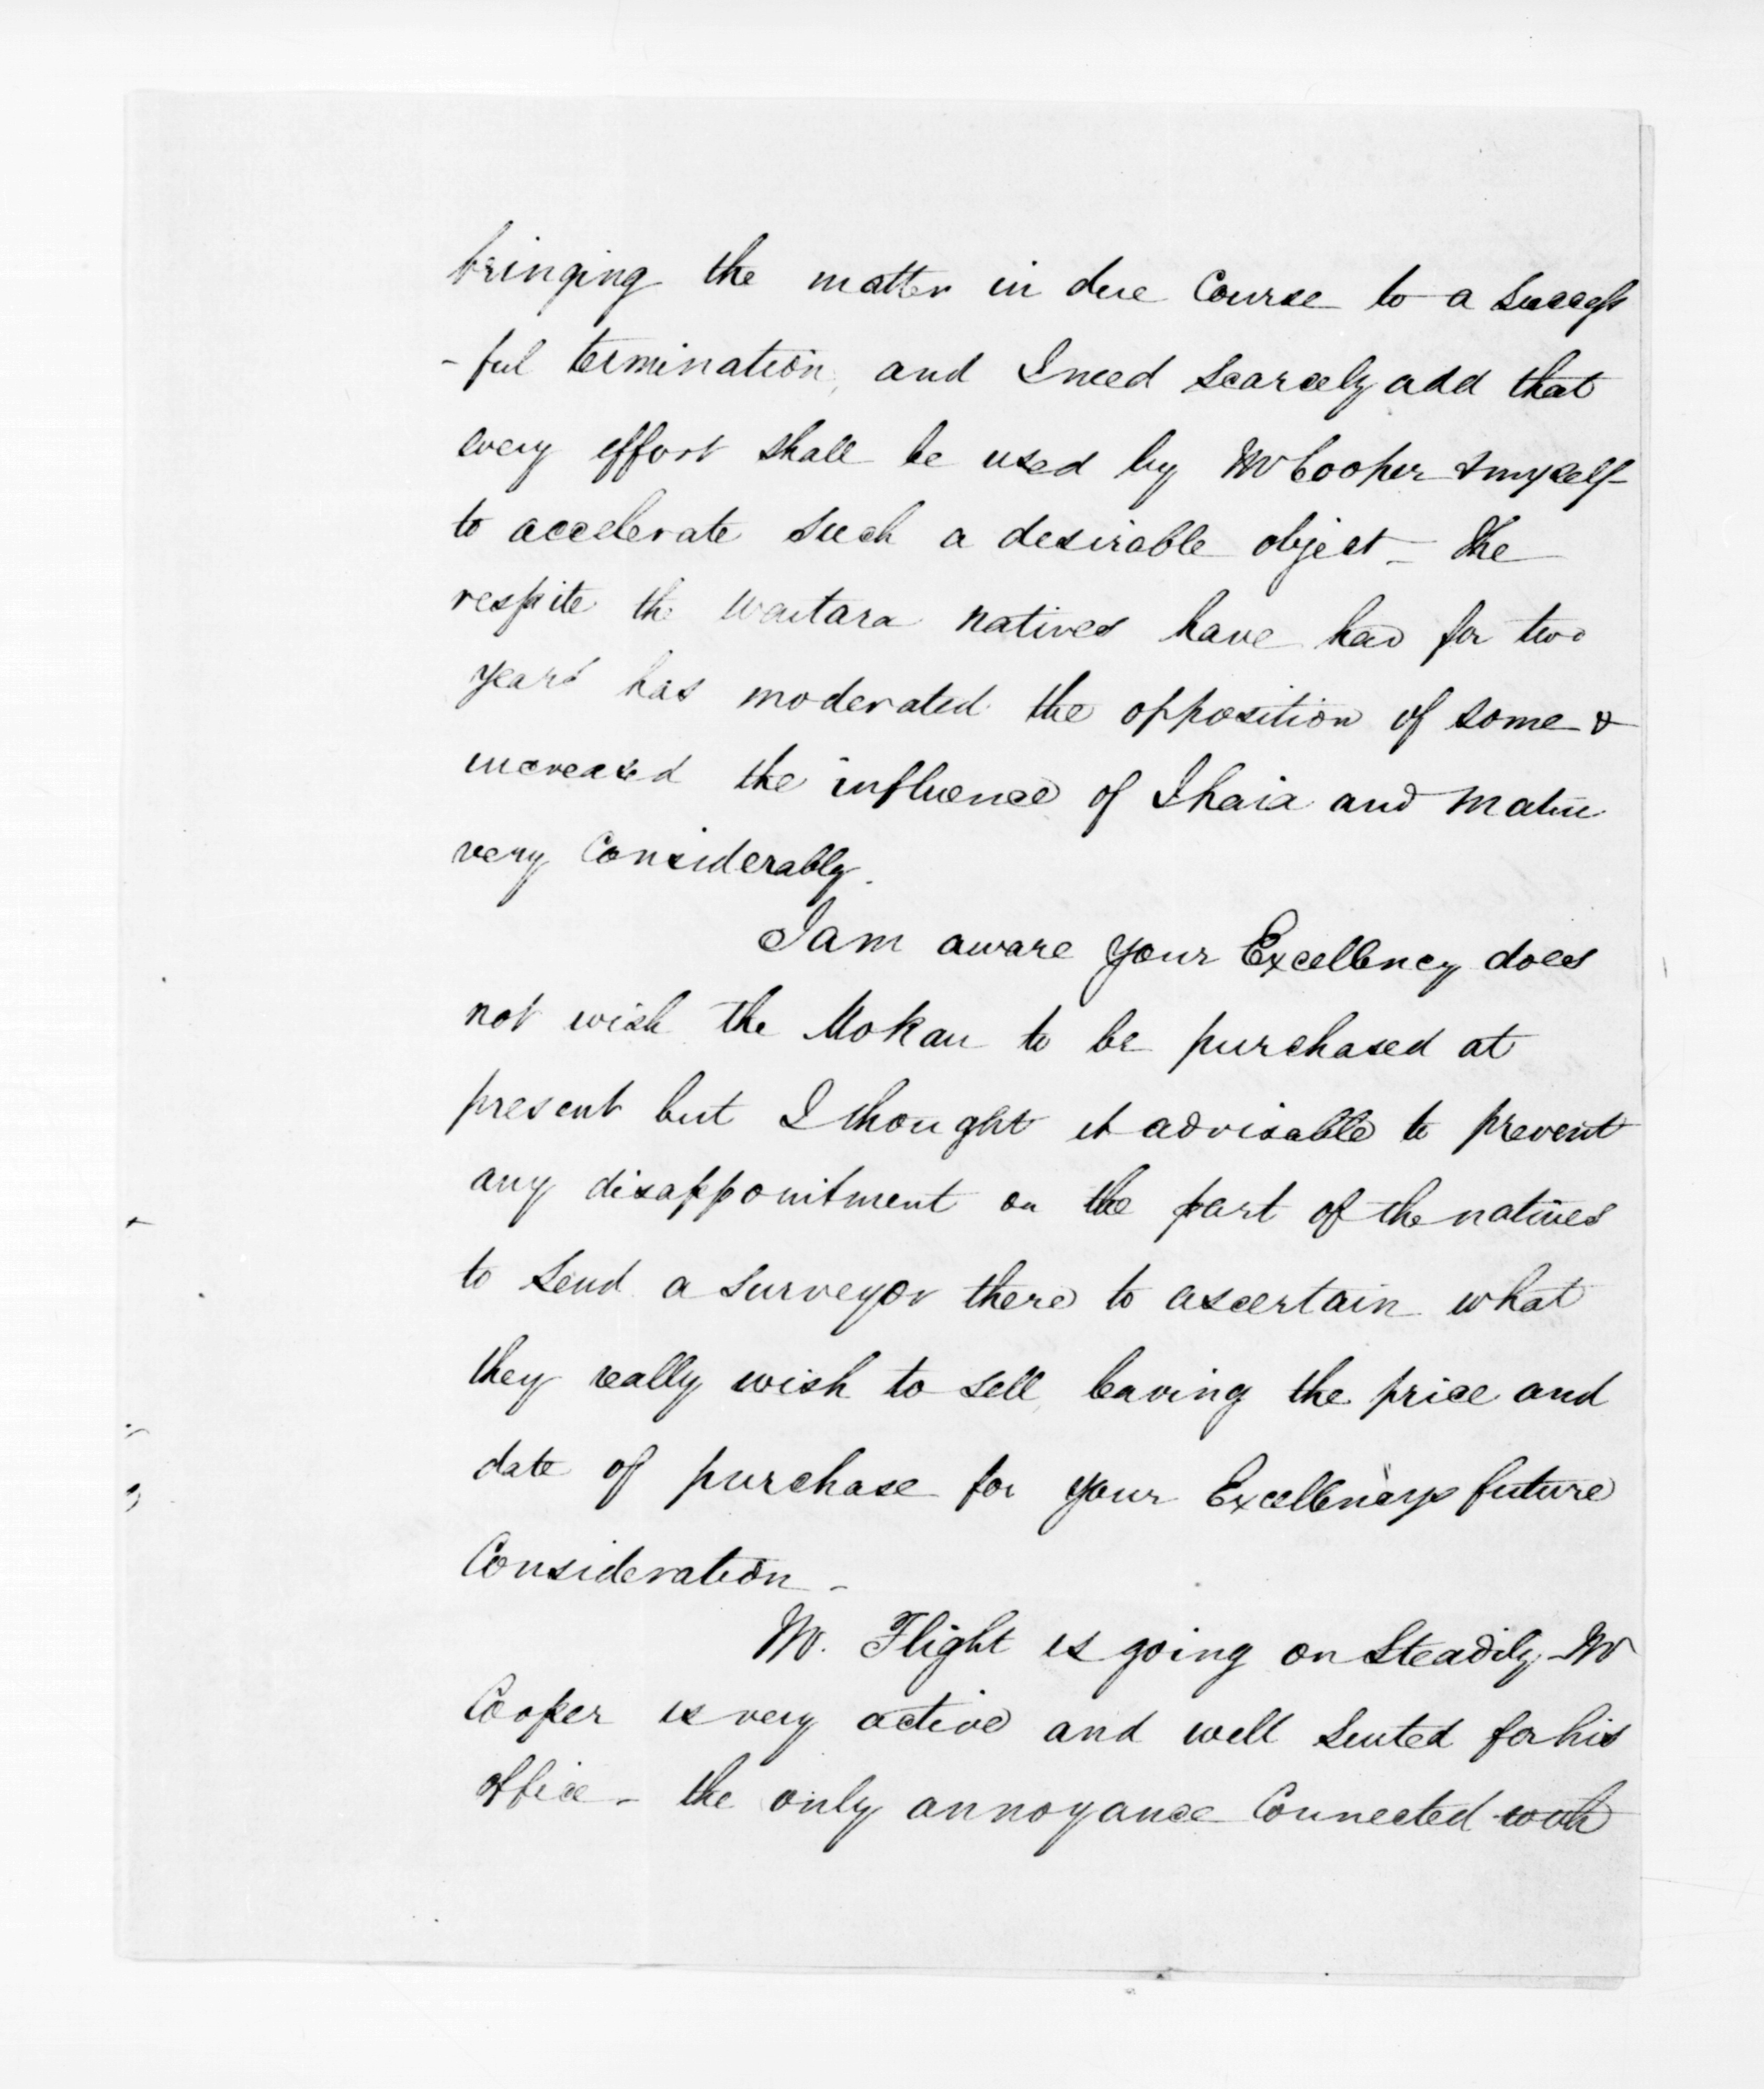 bringing the matter in due Course to a Success
-ful termination, and I need scarcely add that
every effort shall be used by Mr Cooper & myself
to accelerate such a desirable object - The
respite the Waitara natives have had for two
years has moderated the opposition of some &
increased the influence of Ihaia and Matiu
very Considerably.
I am aware your Excellency does
not wish the Mokau to be purchased at
present but I thought it advisable to prevent
any disappointment on the part of the natives
to send a surveyor there to ascertain what
they really wish to sell, leaving the price and
date of purchase for your Excellency's future
Consideration -
Mr. Flight is going on steadily, - Mr
Cooper is very active and well suited for his
office - the only annoyance Connected with